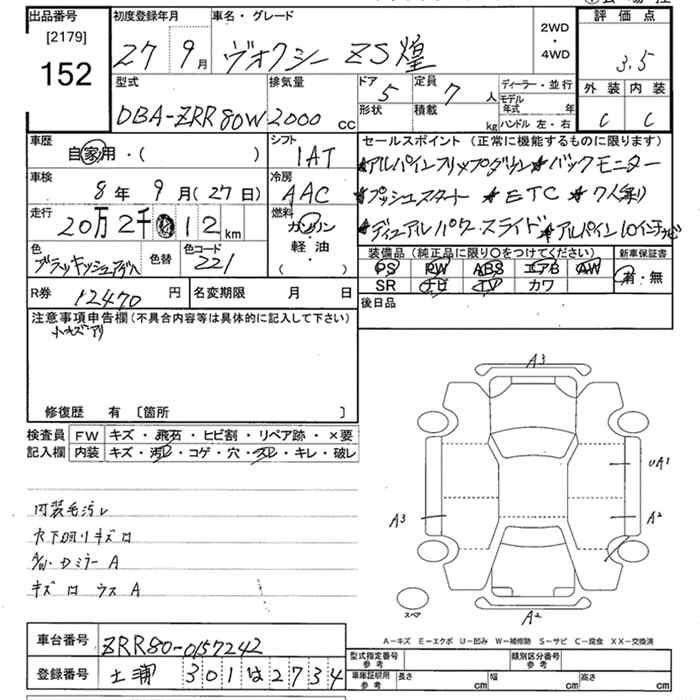 出品番号
[2179]
152
初度登録年月
27 9月
車名・グレード
ヴォクシー ZS煌
2WD
・
4WD
評価点
3.5
型式
DBA-ZRR80W
排気量
2000 cc
ドア
5
定員
7 人
形状
積載
kg
ディーラー・並行
モデル年式 年
ハンドル 左・右
外装 内装
C C
車歴
自家用・( )
シフト
IAT
車検
8年 9月(27日)
冷房
AAC
走行
20万2千 12 km
燃料
ガソリン
軽・油
( )
色
色替
色コード
221
R券 12470 円
名変期限 月 日
セールスポイント(正常に機能するものに限ります)
*アルパインフリップダウン *バックモニター
*プッシュスタート *ETC *7人乗り
*デュアルパワースライド *アルパイン10インチナビ
装備品(純正品に限り○をつけてください)
新車保証書
PS PW ABS エアB AW
SR ナビ TV カワ
有・無
後日品
注意事項申告欄(不具合内容等は具体的に記入して下さい)
小キズアリ
修復歴 有 〔箇所 〕
検査員
記入欄
FW キズ・飛石・ヒビ割・リペア跡・×要
内装 キズ・汚レ・コゲ・穴・スレ・キレ・破レ
内装毛汚レ
キズ 口 ウス A
A3
UA1
A3
A2
スペア
A2
A−キズ E−エクボ U−凹み W−補修跡 S−サビ C−腐食 XX−交換済
車台番号 ZRR80-0157242
登録番号 土浦 301は2734
型式指定番号
参考
類別区分番号
参考
車庫証明用
参考
長さ cm
幅 cm
高さ cm